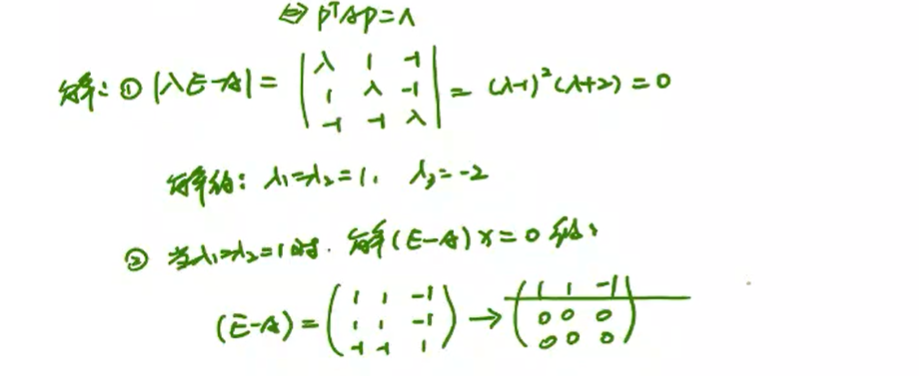 ⇔ PᵀAP=Λ
解:① |λE-A|= | λ 1 -1 | 1 λ -1 | -1 -1 λ | = (λ-1)²(λ+2)=0
解的: λ₁=λ₂=1, λ₃=-2
② 当λ₁=λ₂=1时. 解(E-A)x=0
(E-A)= ( 1 1 -1 | 1 1 -1 | -1 -1 1 ) → ( 1 1 -1 | 0 0 0 | 0 0 0 )